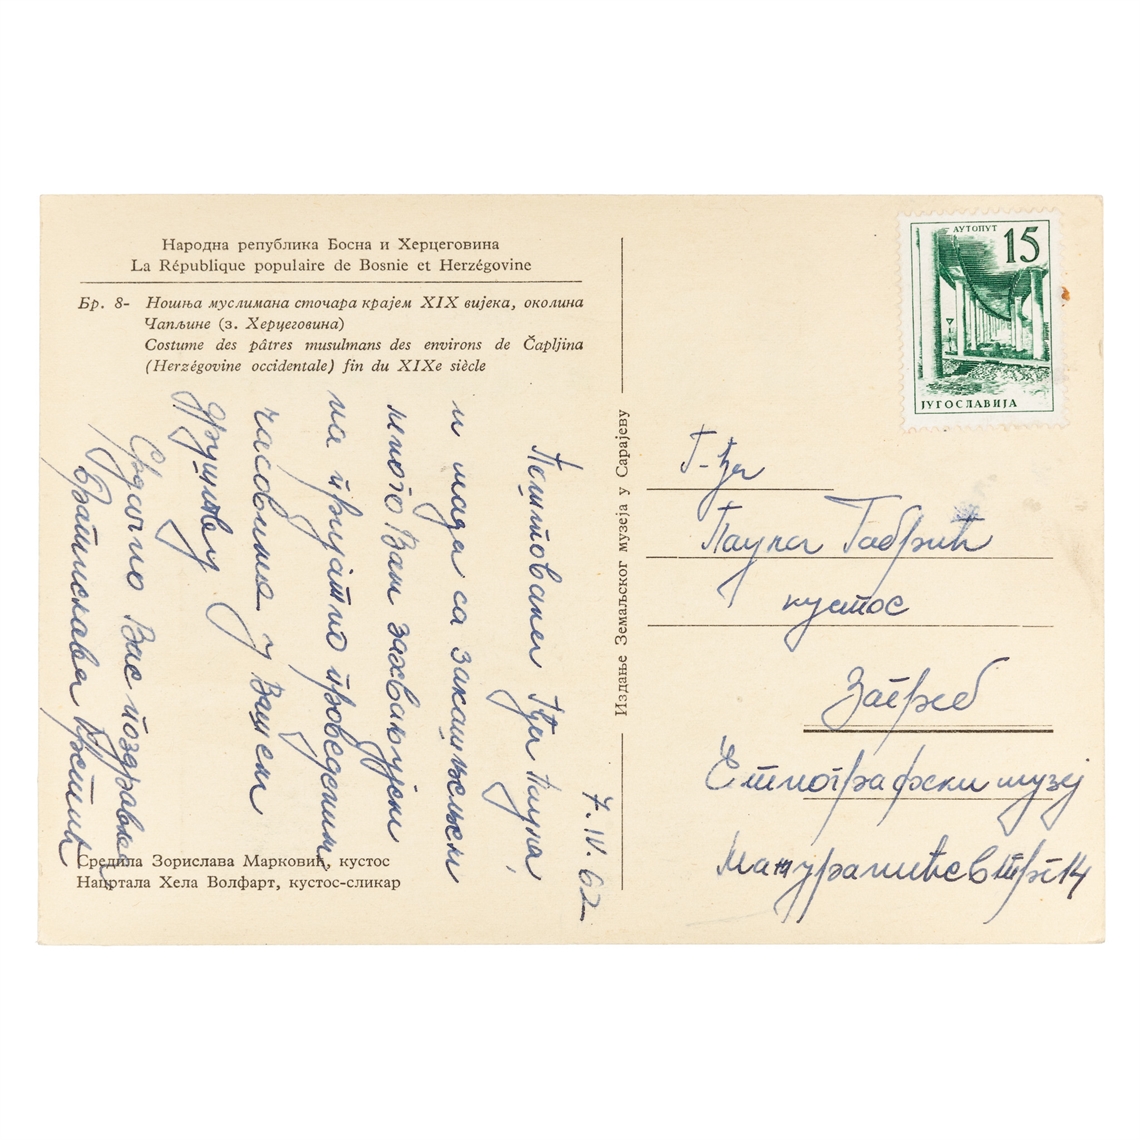 Народна република Босна и Херцеговина
La République populaire de Bosnie et Herzégovine
Бр. 8- Ношња муслимана сточара крајем XIX вијека, околина
Чапљине (з. Херцеговина)
Costume des pâtres musulmans des environs de Čapljina
(Herzégovine occidentale) fin du XIXe siècle
7. IV. 62
Поштована Гђа Паула,
и мада са закашњењем
много Вам захваљујем
на пријатно проведеним
часовима у Вашем
друштву
Срдачно Вас поздравља
Братислава
Средила Зорислава Марковић, кустос
Нацртала Хела Волфарт, кустос-сликар
Издање Земаљског музеја у Сарајеву
АУТОПУТ
15
ЈУГОСЛАВИЈА
Г-ђа
Паула Габрић
кустос
Загреб
Етнографски музеј
Мажуранићев трг 14